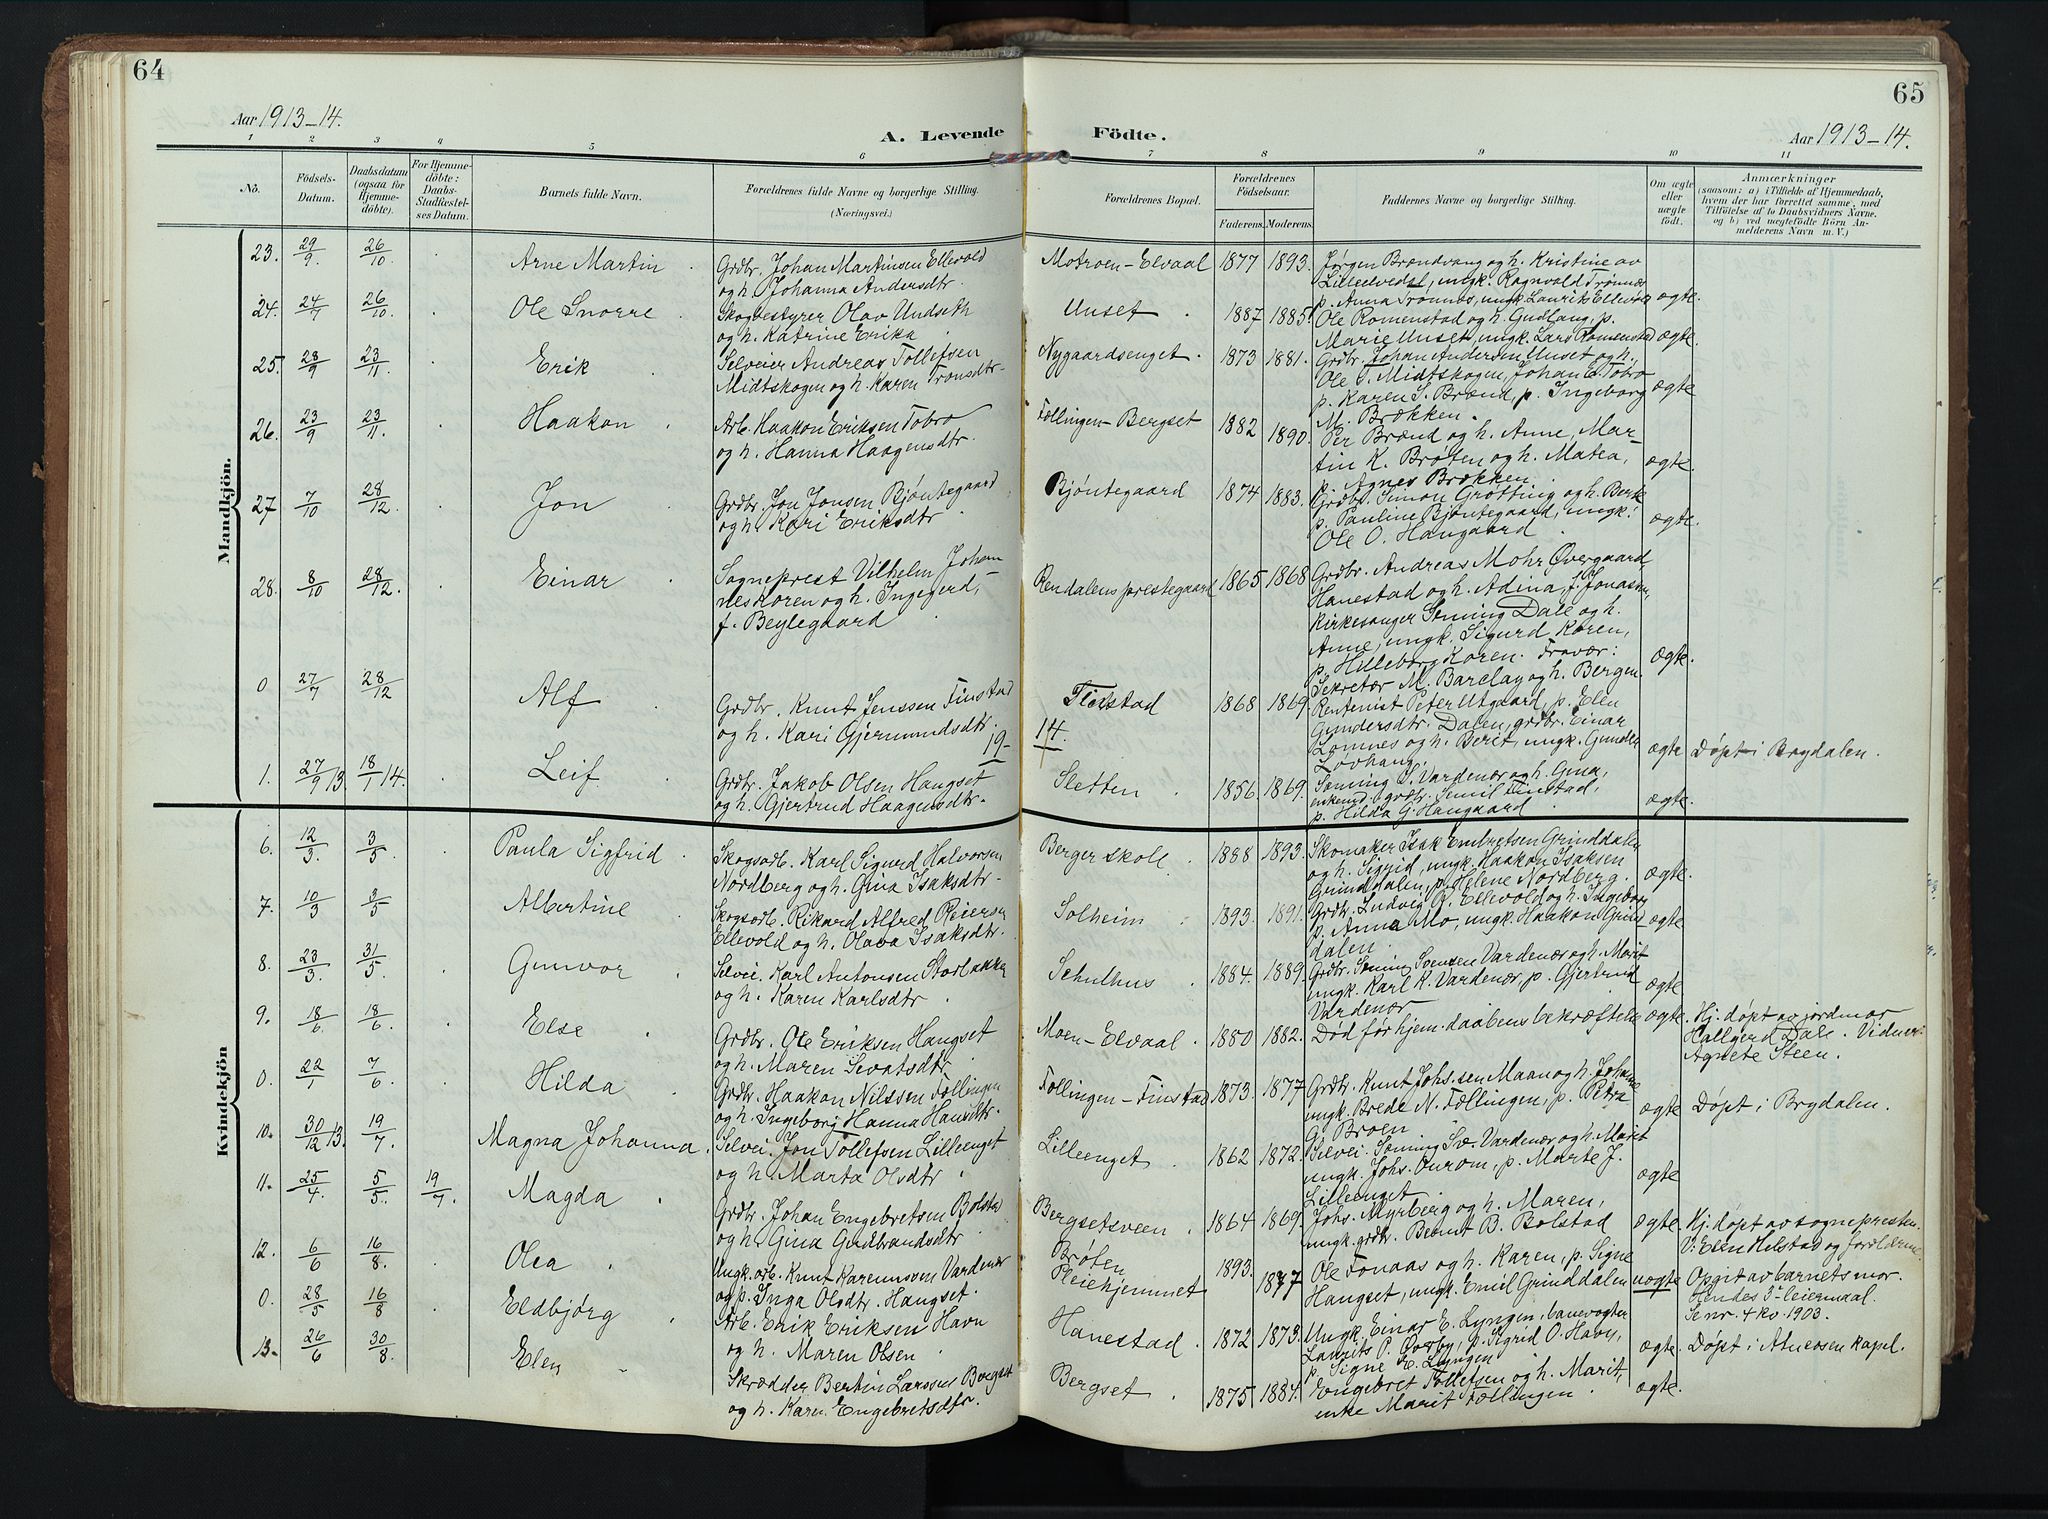 64
Aar 1913-14.
A. Levende
1 2 3 4 5 6
No.
Födsels-Datum.
Daabsdatum (ogsaa for Hjemmedöbte).
For Hjemmedöbte: Daabs-Stadfæstelses Datum.
Barnets fulde Navn.
Forældrenes fulde Navne og borgerlige Stilling.
(Næringsvei.)
Mandkjön.
23. 29/9 26/10 Arne Martin Grdbr. Johan Martinsen Ellevold
og h. Johanna Andersdtr.
24. 24/7 26/10 Ole Snorre Skogbestyrer Olav Undseth
og h. Katrine Erika
25. 28/9 23/11 Erik Selveier Andreas Tollefsen
Midtskogen og h. Karen Tronsdtr.
26. 23/9 23/11 Haakon Arb. Haakon Eriksen Tobro
og h. Hanna Haagensdtr.
27 7/10 28/12 Jon Grdbr. Jon Jonsen Bjöntegaard
og h. Kari Eriksdtr.
28. 8/10 28/12. Einar Sogneprest Vilhelm Johan
nes Koren og h. Ingegerd,
f. Beylegaard
0 27/7 28/12 Alf Grdbr. Knut Jenssen Finstad
og h. Kari Gjermundsdtr.
19-
1. 27/9 13. 18/1 14. Leif Grdbr. Jakob Olsen Hangset
og h. Gjertrud Haagensdtr.
Kvindekjön
6. 12/3. 3/5 Paula Sigfrid Skogsarb. Karl Sigurd Halvorsen
Nordberg og h. Gina Isaksdtr.
7. 10/3 3/5 Albertine Skogsarb. Rikard Alfred Reiersen
Ellevold og h. Olava Isaksdtr.
8. 23/3. 31/5 Gunvor Selvei. Karl Antonsen Storbakken
og h. Karen Karlsdtr
9. 18/6 18/6. Else Grdbr. Ole Eriksen Hangset
og h. Maren Sevatsdtr.
0. 22/1 7/6 Hilda Grdbr. Haakon Nilssen Fællingen
og h. Ingeborg Hanna Hansdtr.
10. 30/12 13. 19/7. Magna Johanna Selvei. Jon Tollefsen Lilleenget
og h. Marta Olsdtr
11. 25/4 5/5. 19/7. Magda Grdbr. Johan Engebretsen Bolstad
og h. Gina Gudbrandsdtr
12. 6/6 16/8. Olea Ungk. arb. Knut Karenussen Vardenær
og p. Inga Olsdtr. Hangset.
0. 28/5 16/8 Eldbjørg Arb. Erik Eriksen Havn
og h. Maren Olsen
13. 26/6 30/8. Elen Skrædder Bertin Larssen Bergset
og h. Karen Engebretsdtr.
65
Aar 1913-14.
Födte.
7 8 9 10 11
Forældrenes Bopæl.
Forældrenes Födselsaar.
Faderens. Moderens.
Faddernes Navne og borgerlige Stilling.
Om ægte eller uægte födt.
Anmærkninger
(saasom: a) i Tilfælde af Hjemmedaab,
hvem der har forrettet samme, med
Tilföielse af to Daabsvidners Navne,
og b) ved uægtefödte Börn An-
melderens Navn m. V.)
Motroen-Elvaal 1877 1893. Jørgen Brændvang og h. Kristine av
Lilleelvedal, ungk. Ragnvald Trønnæs
p. Anna Trønnes, ungk. Laurits Ellevold ægte.
Unset 1887 1885. Ole Romenstad og h. Gudlaug, p.
Marie Unset, ungk. Lars Romenstad ægte.
Nygaardsenget 1873 1881. Grdbr. Johan Andersen Unset og h.
Ole T. Midtskogen, Johan E Tobro
p. Karen S. Brænd, p. Ingeborg ægte
M. Brækken.
Fællingen-Bergset 1882 1890. Per Brænd og h. Anne, Mar-
tin K. Brøten og h. Matea,
p. Agnes Brækken. ægte.
Bjøntegaard 1874 1883. Grdbr. Simon Grøtting og h. Berte
p. Pauline Bjøntegaard, ungk.
Ole O. Haugaard. ægte.
Rendalens prestegaard 1865 1868 Grdbr. Andreas Mohr Øvergaard
Hanestad og h. Adina, f. Jonassen,
Kirkesanger Semming Dale og h.
Anne, ungk. Sigurd Koren,
p. Hilleborg Koren. Fravær: ægte.
Sekretær M. Barclay og h. Bergen
Finstad 1868 1869. Rentenist Peter Utgaard, p. Elen
Gundersdtr. Dalen, grdbr. Einar
Lomnes og h. Berit, ungk. Gunder
Løvhaug. ægte Døpt i Brydalen.
14.
Sletten 1856 1869. Semming S. Vardenær og h. Gina,
enkemd. grdbr. Semil Finstad,
p. Hilda G. Haugaard ægte.
Berger skole 1888 1893. Skomaker Isak Embretsen Grinddalen
og h. Sigrid, ungk. Haakon Isaksen
Grinddalen, p. Helene Nordberg. ægte.
Solheim 1893. 1891. Grdbr. Ludvig R. Ellevold og h. Ingeborg
p. Anna Mo, ungk. Haakon Grind-
dalen. ægte
Schulhus 1884. 1889. Grdbr. Semming Svensen Vardenær og h. Marit
ungk. Karl K. Vardenær, p. Gjertrud
Vardenær ægte
Moen-Elvaal 1880 1882. Død før hjem. daabens bekræftelse ægte. Hj. døpt av jordmor
Hallgerd Dale. Vidner:
Agnete Steen.
Fællingen-Finstad 1873. 1877 Grdbr. Knut Johs.sen Maan og h. Johanne
ungk. Brede N. Fællingen, p. Petra
G. Broen ægte Døpt i Brydalen.
Lilleenget 1862 1872. Selvei. Semming Sv. Vardenær og h. Marit
ungk. Johs. Aurom, p. Marte J.
Lilleenget ægte
Bergsetsveen 1864 1869. Johs. Myrberg og h. Maren,
ungk. grdbr. Bernt B. Bolstad ægte Hj. døpt av sognepresten.
V. Elen Helstad og forældrene
Brøten
Pleiehjemmet 1893. 1877 Ole Fonaas og h. Karen, p. Signe
Hangset, ungk. Emil Grinddalen uægte Opgit av barnets mor.
Hendes 3die leiermaal.
Se nr. 4 kv. 1903.
Hanestad 1872 1873. Ungk. Einar E. Lyngen, banevogter
Laurits P. Øvrby, p. Sigrid O. Havn,
p. Signe E. Lyngen ægte. Døpt i Atneosen kapel.
Bergset 1875 1884. Engebret Tollefsen og h. Marit,
enke Marit Fællingen. ægte.